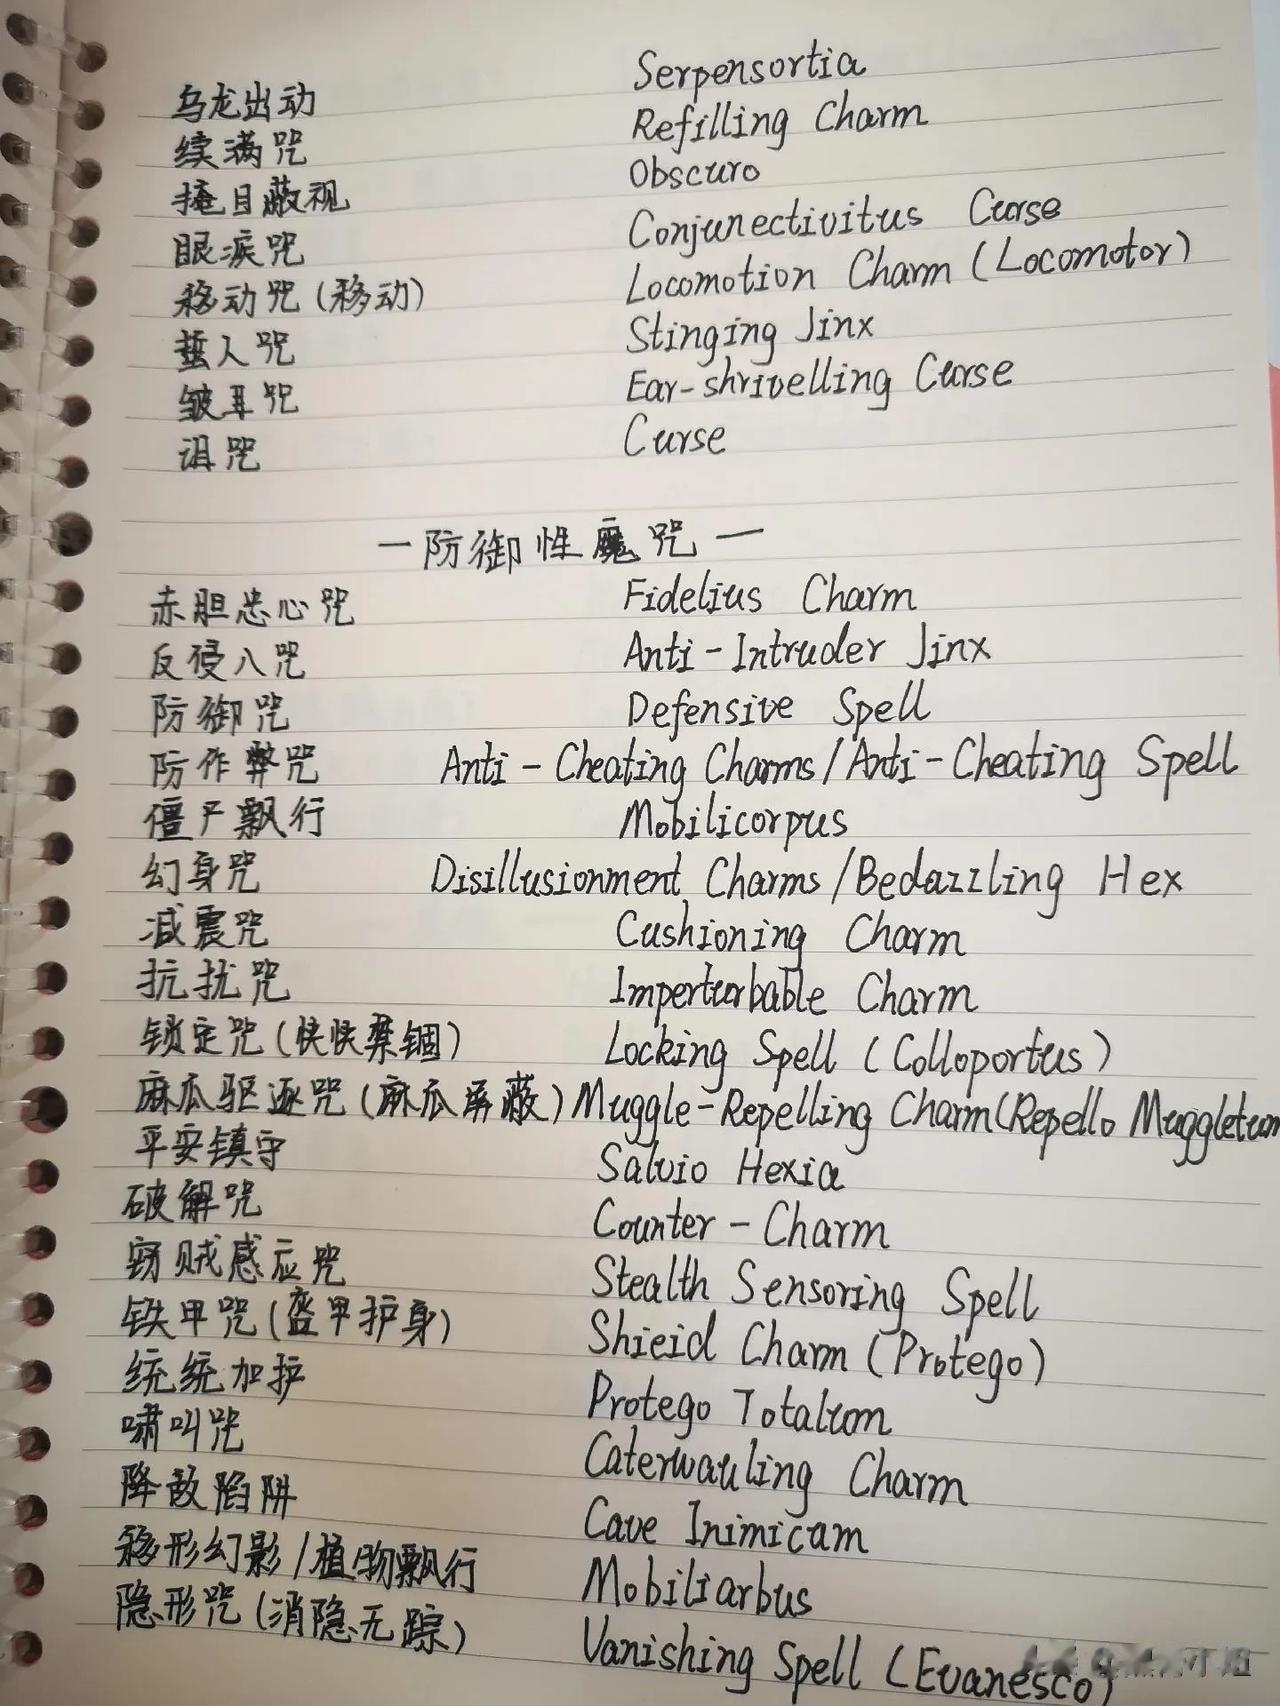 乌龙出动 Serpensortia
续满咒 Refilling Charm
掩目蔽视 Obscuro
眼疾咒 Conjunectivitus Curse
移动咒(移动) Locomotion Charm (Locomotor)
蜇人咒 Stinging Jinx
皱耳咒 Ear-shrivelling Curse
诅咒 Curse
一防御性魔咒一
赤胆忠心咒 Fidelius Charm
反侵入咒 Anti-Intruder Jinx
防御咒 Defensive Spell
防作弊咒 Anti-Cheating Charms/Anti-Cheating Spell
僵尸飘行 Mobilicorpus
幻身咒 Disillusionment Charms/Bedazzling Hex
减震咒 Cushioning Charm
抗扰咒 Imperturbable Charm
锁定咒(快快禁锢) Locking Spell (Colloportus)
麻瓜驱逐咒(麻瓜屏蔽) Muggle-Repelling Charm(Repello Muggletum
平安镇守 Salvio Hexia
破解咒 Counter-Charm
窃贼感应咒 Stealth Sensoring Spell
铁甲咒(盔甲护身) Shieid Charm (Protego)
统统加护 Protego Totalum
啸叫咒 Caterwauling Charm
降敌陷阱 Cave Inimicam
移形幻影/植物飘行 Mobiliarbus
隐形咒(消隐无踪) Vanishing Spell (Evanesco)